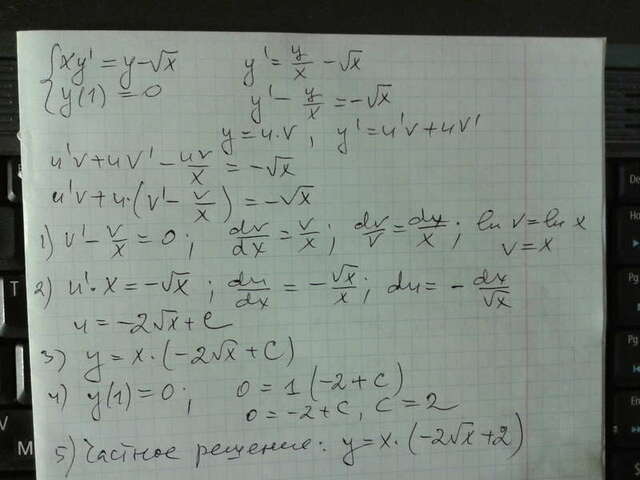 { xy' = y - √x    y' = y/x - √x
{ y(1) = 0    y' - y/x = -√x
y = u·v, y' = u'v + uv'
u'v + uv' - uv/x = -√x
u'v + u·(v' - v/x) = -√x
1) v' - v/x = 0; dv/dx = v/x; dv/v = dx/x; ln v = ln x
v = x
2) u'·x = -√x; du/dx = -√x/x; du = -dx/√x
u = -2√x + C
3) y = x·(-2√x + C)
4) y(1) = 0; 0 = 1(-2 + C)
0 = -2 + C, C = 2
5) Частное решение: y = x·(-2√x + 2)
T
M
De
Pg
Pg
En